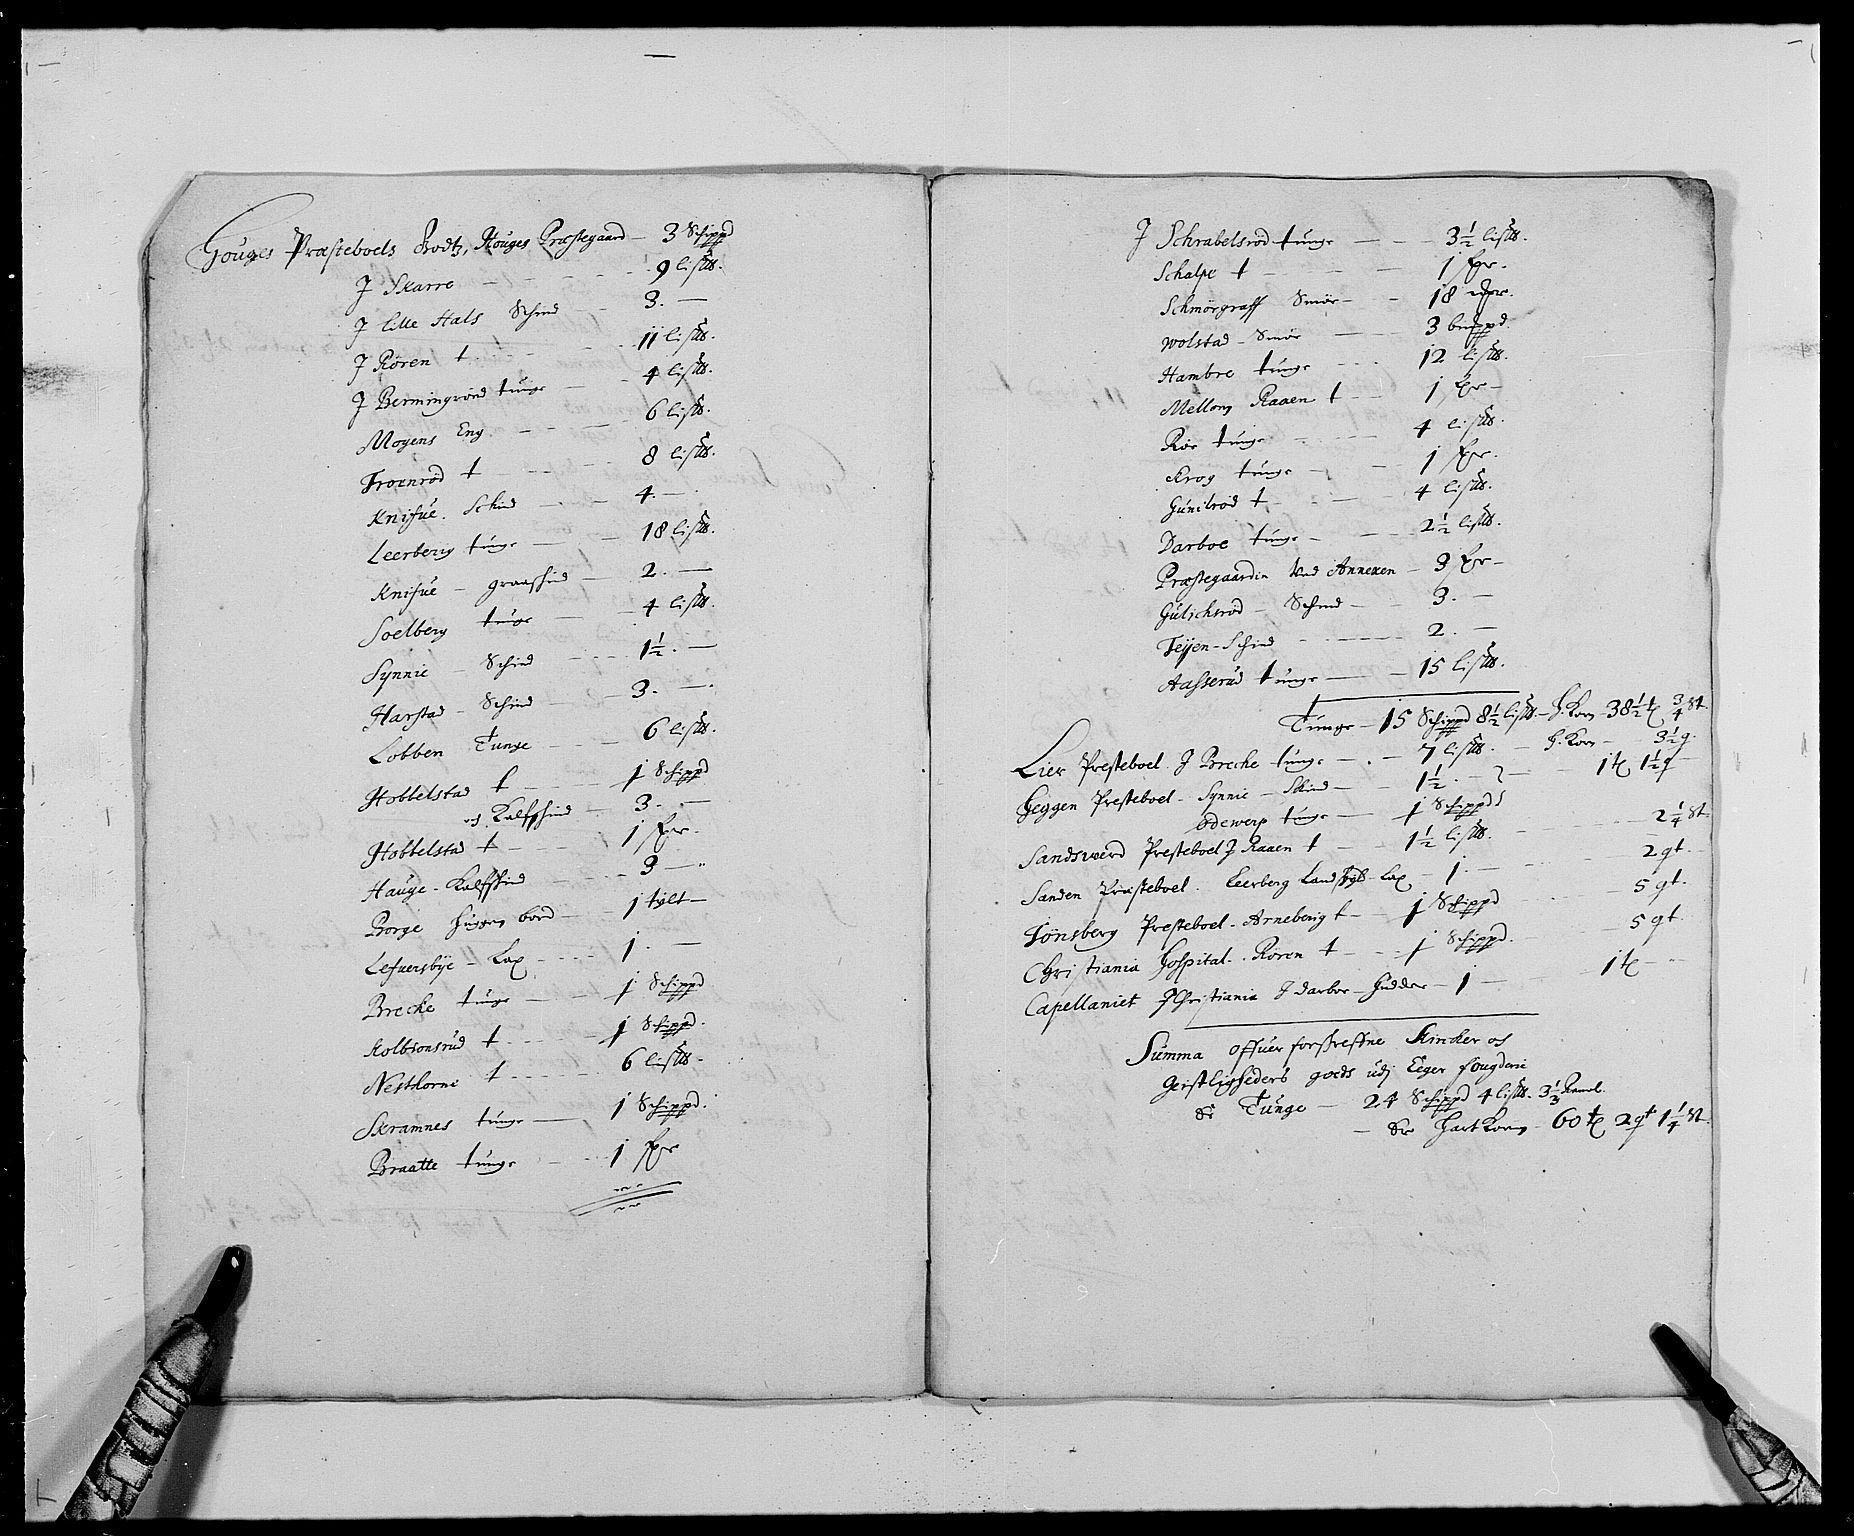 Houges Præsteboels Godtz, Houges Præstegaard — 3 Schippd
J Skarre — 9 lispd.
J lille Hals Schind 3. —
J Røren t. 11 lispd.
J Bermingrød tunge — 4 lispd.
Mogens Eng. — 6 lispd.
Troenrød t — 8 lispd.
Knifue. Schind — 4. —
Leerberg tunge — 18 lispd.
Knifue — graaschind — 2. —
Soelberg tunge — 4 lispd.
Synnie — Schind 1½. —
Harstad — Schind — 3. —
Lobben Tunge — 6 lispd.
Hobbelstad t — 1 Schippd
og Kalfschind — 3. —
Hobbelstad t — 1 fr.
Hauge — Kalfschind — 3 —
Borge huggen bord — 1 tylt —
Lefuersbye — Lax — 1. —
Brecke tunge — 1 Schippd
Kolbionsrud t — 1 Schippd.
Nestborne t — 6 lispd —
Skramnes tunge — 1 Schippd.
Braatte tunge — 1 fr
J Schrabelsrød tunge — 3½ lispd.
Schalpe t — 1 fr.
Schmørgraff Smør — 18
Wolstad — Smør — 3 bispd.
Hambre tunge — 12 lispd.
Mellom Raaen t — 1 fr —
Roe tunge — 4 lispd.
Krog tunge — 1 fr.
Gunilrød t — 4 lispd.
Darboe tunge — 2½ lispd.
Præstegaarden ved Annexen — 3 fr —
Gulichsrød — Schind — 3. —
Teijen — Schind — 2. —
Aasserud tunge — 15 lispd.
Tunge — 15 Schippd 8½ lispd. — H. Korn 38½ t 3/4 St.
Lier Presteboel J Brecke tunge — 7 lispd. — H. Korn — 3½ q.
Heggen Presteboel — Synnie — Skind — 1½. — 1 t 1½ q —
Odewerp tunge — 1 Schippd
Sandswerd Presteboel J Raaen t — 1½ lispd. 2¼ St.
Sanden Præsteboel. Leerberg Landschyld Lax — 1. — 2 qt.
Tønsberg Presteboel — Arneberig t — 1 Schippd 5 qt.
Christiania Hospital — Røren t — 1 Schippd. 5 qt.
Capellaniet J Christiania J Darboe — Hudder — 1 — 1 t
Summa offuer forskreffne Kircker og
Geistligheders goeds udj Eeger fougderie
Er Tunge — 24 Schippd 4 lispd. 3⅓ Remol.
— Er Hartkorn — 60 t 2 qt 1¼ St.